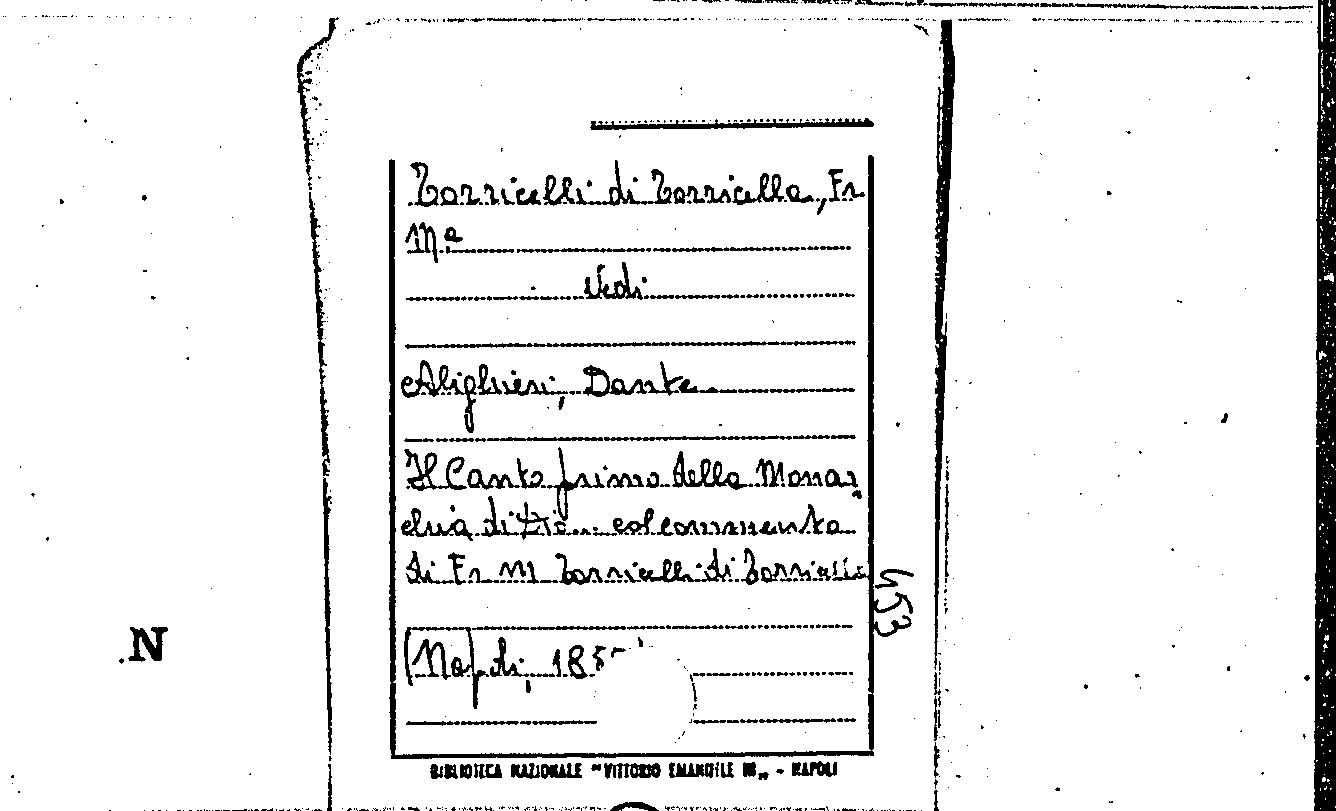 Torricelli di Torricella, Fr.
M.ª
Vedi
Alighieri, Dante
Il Canto primo della Monar
chia di Dio... col commento
di Fr M Torricelli di Torricella
453
(Napoli, 185
N
BIBLIOTECA NAZIONALE "VITTORIO EMANUELE III" - NAPOLI